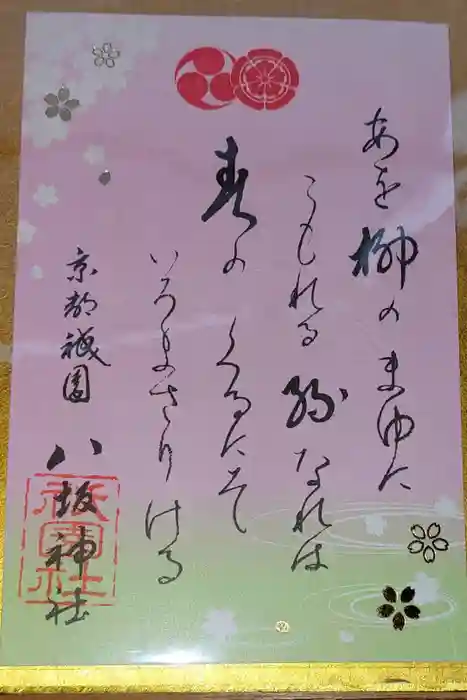 あを柳のまゆに
こもれる絲なれは
春のくるにそ
いろまさりける
京都祇園 八坂神社